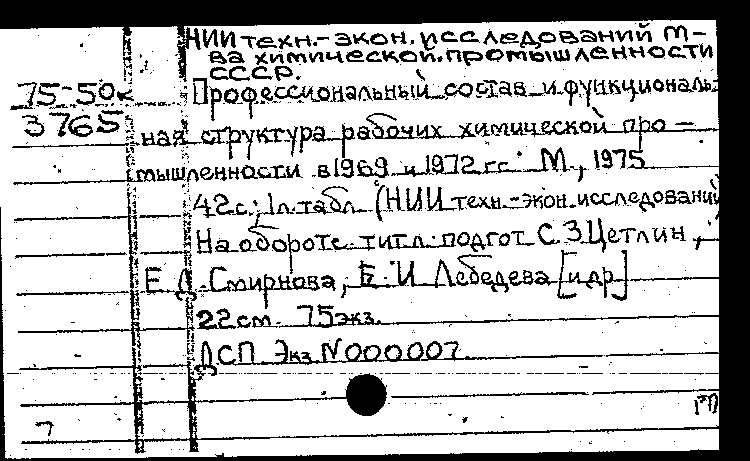 НИИ техн.-экон. исследований м-
ва химической промышленности
СССР.
75-50к
3765
Профессиональный состав и функциональ-
ная структура рабочих химической про-
мышленности в 1969 и 1972 гг. М., 1975
42 с.; 1 л. табл. (НИИ техн.-экон. исследований)
На обороте тит. л. подгот С. З. Цетлин,
Е. Д. Смирнова, Б. И. Лебедева [и др]
22 см. 75 экз.
ДСП Экз N000007